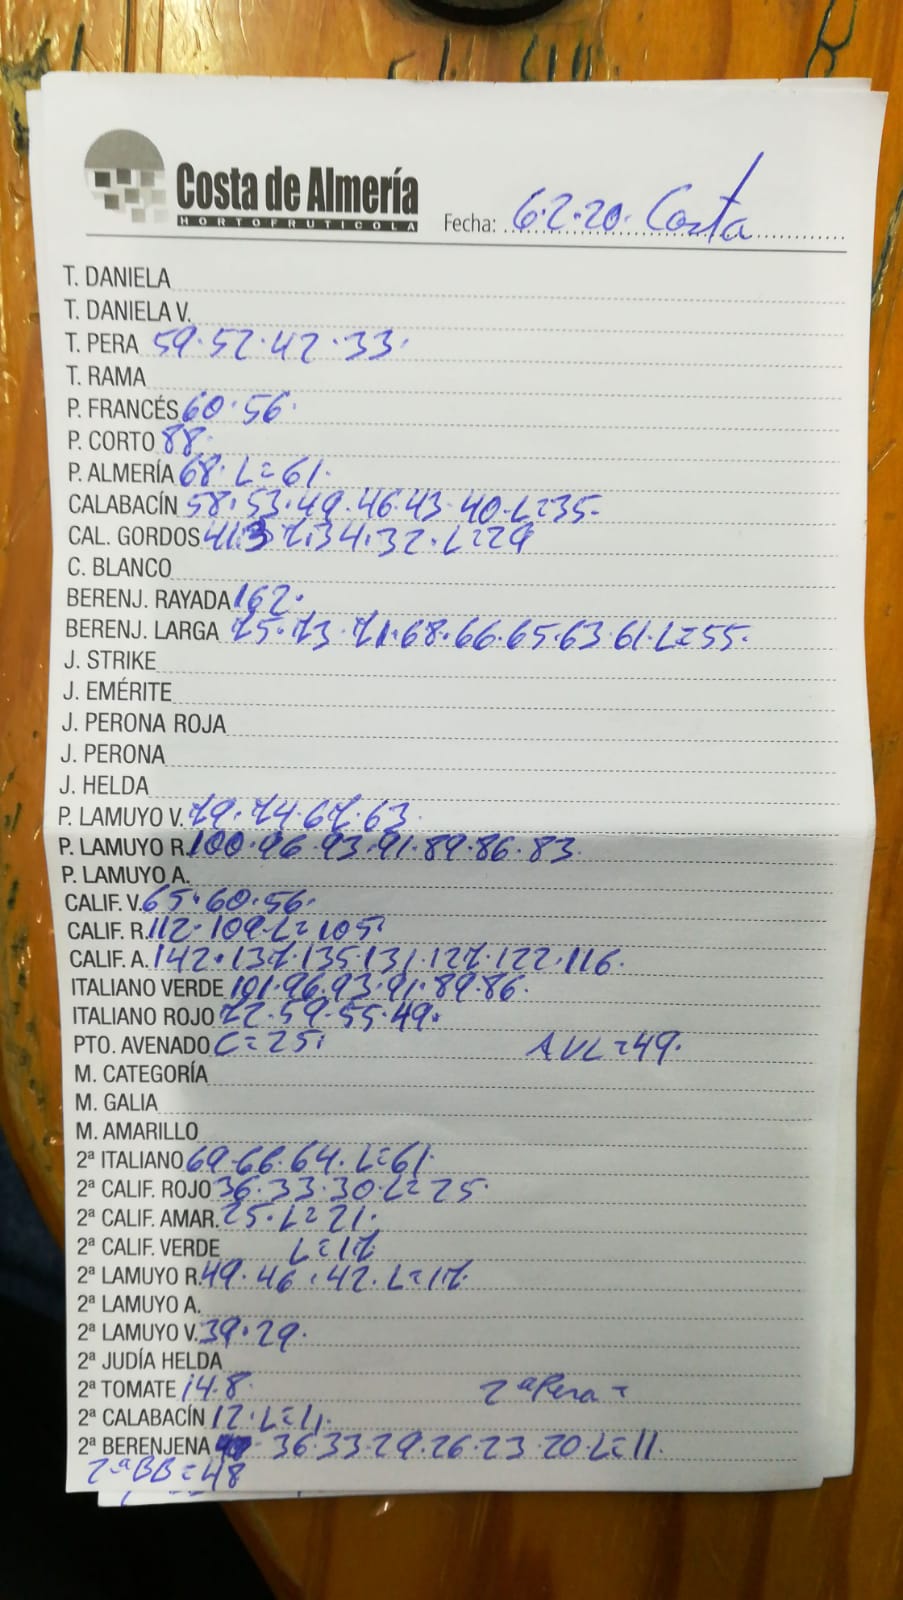 Costa de Almería
HORTOFRUTICOLA
Fecha: 6.2.20. Costa
T. DANIELA
T. DANIELA V.
T. PERA 59.52.42.33.
T. RAMA
P. FRANCÉS 60.56.
P. CORTO 88.
P. ALMERÍA 68. L=61.
CALABACÍN 58.53.49.46.43.40.L=35.
CAL. GORDOS 41.37.34.32.L=29
C. BLANCO
BERENJ. RAYADA 162.
BERENJ. LARGA 75.73.71.68.66.65.63.61.L=55.
J. STRIKE
J. EMÉRITE
J. PERONA ROJA
J. PERONA
J. HELDA
P. LAMUYO V. 79.74.67.63.
P. LAMUYO R. 100.96.93.91.89.86.83.
P. LAMUYO A.
CALIF. V. 65.60.56.
CALIF. R. 112.109.L=105.
CALIF. A. 142.137.135.131.127.122.116.
ITALIANO VERDE 101.96.93.91.89.86.
ITALIANO ROJO 72.59.55.49.
PTO. AVENADO C=25. AVL=49.
M. CATEGORÍA
M. GALIA
M. AMARILLO
2ª ITALIANO 69.66.64.L=61.
2ª CALIF. ROJO 36.33.30.L=25.
2ª CALIF. AMAR. 25.L=21.
2ª CALIF. VERDE L=17.
2ª LAMUYO R. 49.46.42.L=17.
2ª LAMUYO A.
2ª LAMUYO V. 39.29.
2ª JUDÍA HELDA
2ª TOMATE 14.8. 2ª Pera =
2ª CALABACÍN 12.L=11.
2ª BERENJENA 36.33.29.26.23.20.L=11.
2ªBB=48